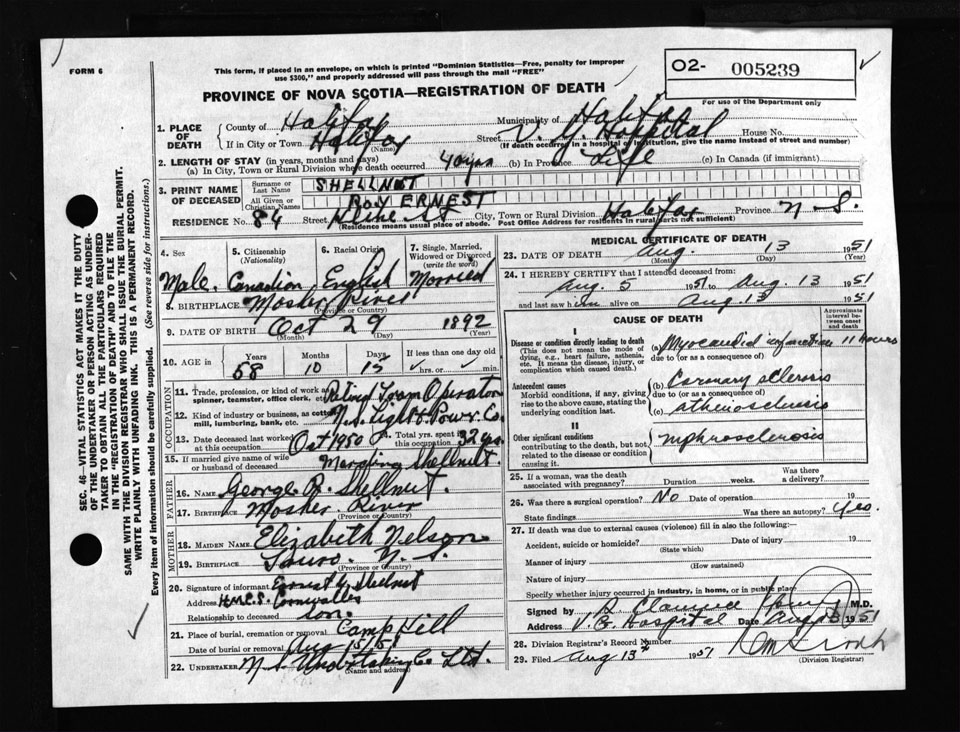 FORM 6
This form, if placed in an envelope, on which is printed "Dominion Statistics—Free, penalty for improper
use $300," and properly addressed will pass through the mail "FREE"
O2- 005239
For use of the Department only
PROVINCE OF NOVA SCOTIA—REGISTRATION OF DEATH
1. PLACE OF DEATH
County of Halifax Municipality of Halifax
If in City or Town Halifax (Name) Street V. G. Hospital House No.
(If death occurred in a hospital or institution, give the name instead of street and number)
2. LENGTH OF STAY (in years, months and days)
(a) In City, Town or Rural Division where death occurred 40 yrs (b) In Province Life (c) In Canada (if immigrant)
3. PRINT NAME OF DECEASED
Surname or Last Name SHELLNUT
All Given or Christian Names ROY ERNEST
RESIDENCE No. 84 Street St City, Town or Rural Division Halifax Province N S.
(Residence means usual place of abode. Post Office Address for residents in rural parts not sufficient)
4. Sex Male
5. Citizenship (Nationality) Canadian
6. Racial Origin English
7. Single, Married, Widowed or Divorced (write the word) Married
8. BIRTHPLACE Mosher River (Province or Country)
9. DATE OF BIRTH Oct (Month) 29 (Day) 1892 (Year)
10. AGE in Years 58 Months 10 Days 15 If less than one day hrs. or min.
OCCUPATION
11. Trade, profession, or kind of work as spinner, teamster, office clerk, etc. Operator
12. Kind of industry or business, as cotton mill, lumbering, bank, etc. N.S. Light & Power Co.
13. Date deceased last worked at this occupation Oct 1950 14. Total yrs. spent in this occupation 32 yrs
15. If married give name of wife or husband of deceased Shellnut.
FATHER
16. Name George R. Shellnut.
17. Birthplace Mosher River (Province or Country)
MOTHER
18. Maiden Name Elizabeth Nelson
19. Birthplace Truro. N. S. (Province or Country)
20. Signature of informant Ernest Shellnut
Address H.M.C.S. Cornwallis
Relationship to deceased son.
21. Place of burial, cremation or removal Camp Hill
Date of burial or removal Aug 15/51
22. UNDERTAKER N.S. Undertaking Co Ltd. (Name and address)
MEDICAL CERTIFICATE OF DEATH
23. DATE OF DEATH Aug. (Month) 13 (Day) 1951 (Year)
24. I HEREBY CERTIFY that I attended deceased from:
Aug. 5 1951 to Aug. 13 1951
and last saw him alive on Aug. 13 1951
CAUSE OF DEATH
Approximate interval between onset and death
I
Disease or condition directly leading to death
(This does not mean the mode of dying, e.g., heart failure, asthenia, etc. It means the disease, injury, or complication which caused death.)
(a) Myocardial infarction 11 hours
due to (or as a consequence of)
Antecedent causes
Morbid conditions, if any, giving rise to the above cause, stating the underlying condition last.
(b) Coronary sclerosis
due to (or as a consequence of)
(c) atherosclerosis
II
Other significant conditions
contributing to the death, but not related to the disease or condition causing it.
nephrosclerosis
25. If a woman, was the death associated with pregnancy? Duration weeks. Was there a delivery?
26. Was there a surgical operation? No Date of operation 19
State findings Was there an autopsy? Yes.
27. If death was due to external causes (violence) fill in also the following:
Accident, suicide or homicide? (State which) Date of injury 19
Manner of injury (How sustained)
Nature of injury
Specify whether injury occurred in industry, in home, or in public place
Signed by S. Clarence M.D.
Address V. G. Hospital Date Aug 1951
28. Division Registrar's Record Number
29. Filed Aug 13th 1951 (Division Registrar)
SEC. 46—VITAL STATISTICS ACT MAKES IT THE DUTY
OF THE UNDERTAKER OR PERSON ACTING AS UNDER-
TAKER TO OBTAIN ALL THE PARTICULARS REQUIRED
IN THE "REGISTRATION OF DEATH" AND TO FILE THE
SAME WITH THE DIVISION REGISTRAR WHO SHALL ISSUE THE BURIAL PERMIT.
WRITE PLAINLY WITH UNFADING INK. THIS IS A PERMANENT RECORD.
Every item of information should be carefully supplied. (See reverse side for instructions.)